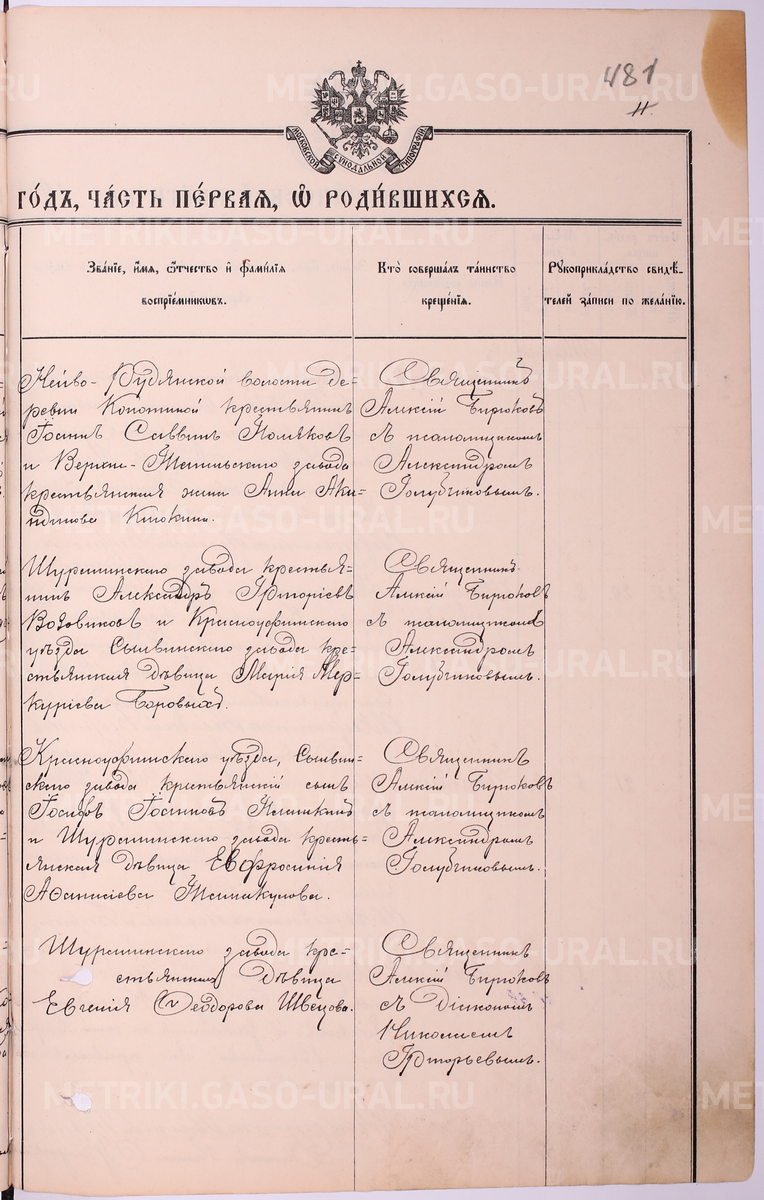 481
МОСКОВСКОЙ СѴНОДАЛЬНОЙ ТИПОГРАФІИ
ГО́ДЪ, ЧА́СТЬ ПЕ́РВАЯ, Ѽ РОДИ́ВШИХСЯ.
Зва́нїе, и҆́мя, ѻ҆́тчество и҆ фами́лїя
воспрїе́мниковъ.
Кто̀ соверша́лъ та́инство
креще́нїя.
Рꙋкоприкла́дство свидѣ́-
телей за́писи по жела́нїю.
Нейво-Рудянской волости де-
ревни Копотиной крестьянинъ
Іоаннъ Саввинъ Поляковъ
и Верхне-Тагильскаго завода
крестьянская жена Анна Аки-
ндинова
Священникъ
Алексій Бирюковъ
съ псаломщикомъ
Александромъ
Голубчиковымъ.
Шуралинскаго завода крестья-
нинъ Александръ Григоріевъ
Возовиковъ и Красноуфимскаго
уѣзда Сылвинскаго завода кре-
стьянская дѣвица Марія Мер-
куріева Боровыхъ.
Священникъ
Алексій Бирюковъ
съ псаломщикомъ
Александромъ
Голубчиковымъ.
Красноуфимскаго уѣзда, Сылвин-
скаго завода крестьянскій сынъ
Іосифъ Іоанновъ
и Шуралинскаго завода кресть-
янская дѣвица Евфросинія
Аѳанасіева
Священникъ
Алексій Бирюковъ
съ псаломщикомъ
Александромъ
Голубчиковымъ.
Шуралинскаго завода кре-
стьянская дѣвица
Евгенія Ѳеодорова Швецова.
Священникъ
Алексій Бирюковъ
съ Діакономъ
Николаемъ
Григорьевымъ.
METRIKI.GASO-URAL.RU